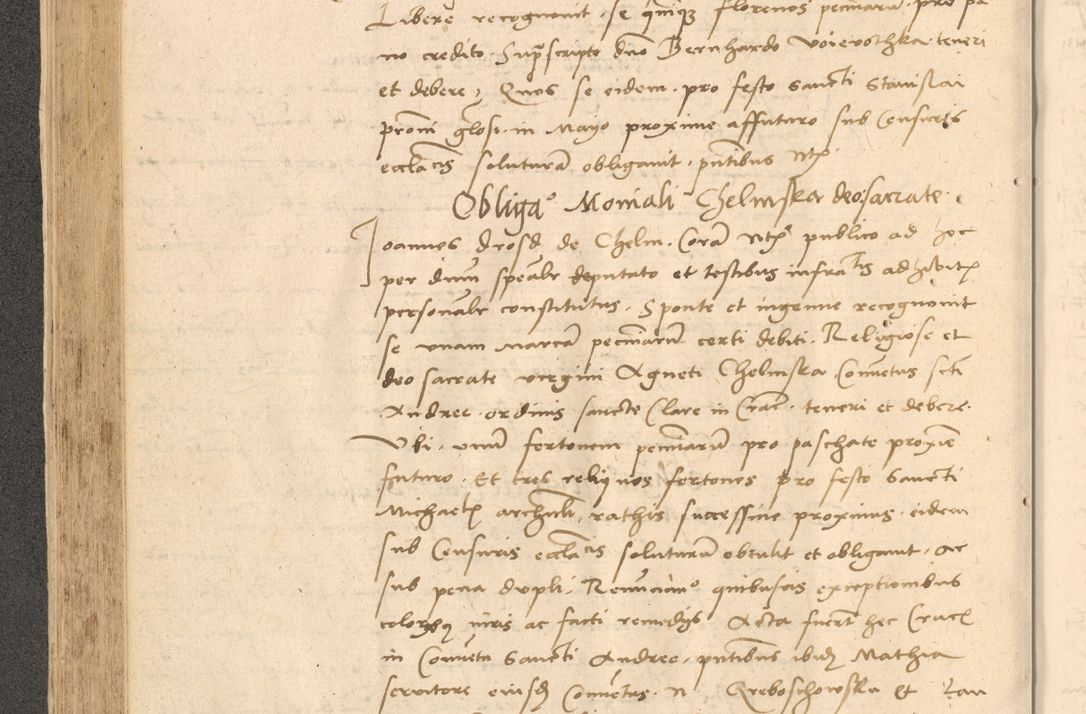 Libere recognouit se quinqz florenos pecuniarũ pro pa
no credito Supscripto dno Bernhardo Voievothka teneri
et debere, Quos se eidem pro festo Sancti Stanislai
proxni glosi in Mayo proxime affuturo sub Censuris
ecclacis soluturũ obligauit. pntibus Ntz
Obligao Moniali Chelmska deo sacrate
Joannes drosd de Chelm. Corã Ntz publico ad hec
per dnum speale deputato et testibus infratis adhibitz
personale constitutus. Sponte et ingenue recognouit
se vnam Marcã pecuniarũ certi debiti. Religiose et
deo sacrate virgini Agneti Chelmska Conuetus scti
Andree ordinis sancte Clare in Crac. teneri et debere.
Vbi vnũ fertonem pecuniarũ pro paschate proxie
futuro. Et tres reliquos fertones pro festo Sancti
Michaelz archãli, rathis successiue proximis eidem
sub Censuris ecclacis soluturũ obtulit et obligauit. Ac
sub pena dupli. Renunciano quibusuis exceptionibus
coloribqz iuris ac facti remedys Acta fuerũt hec Cracz
in Conuetu Sancti Andree, pntibus ibidz Mathia
seruitore eiusdz Conuetus. N Greboschowska et Jan